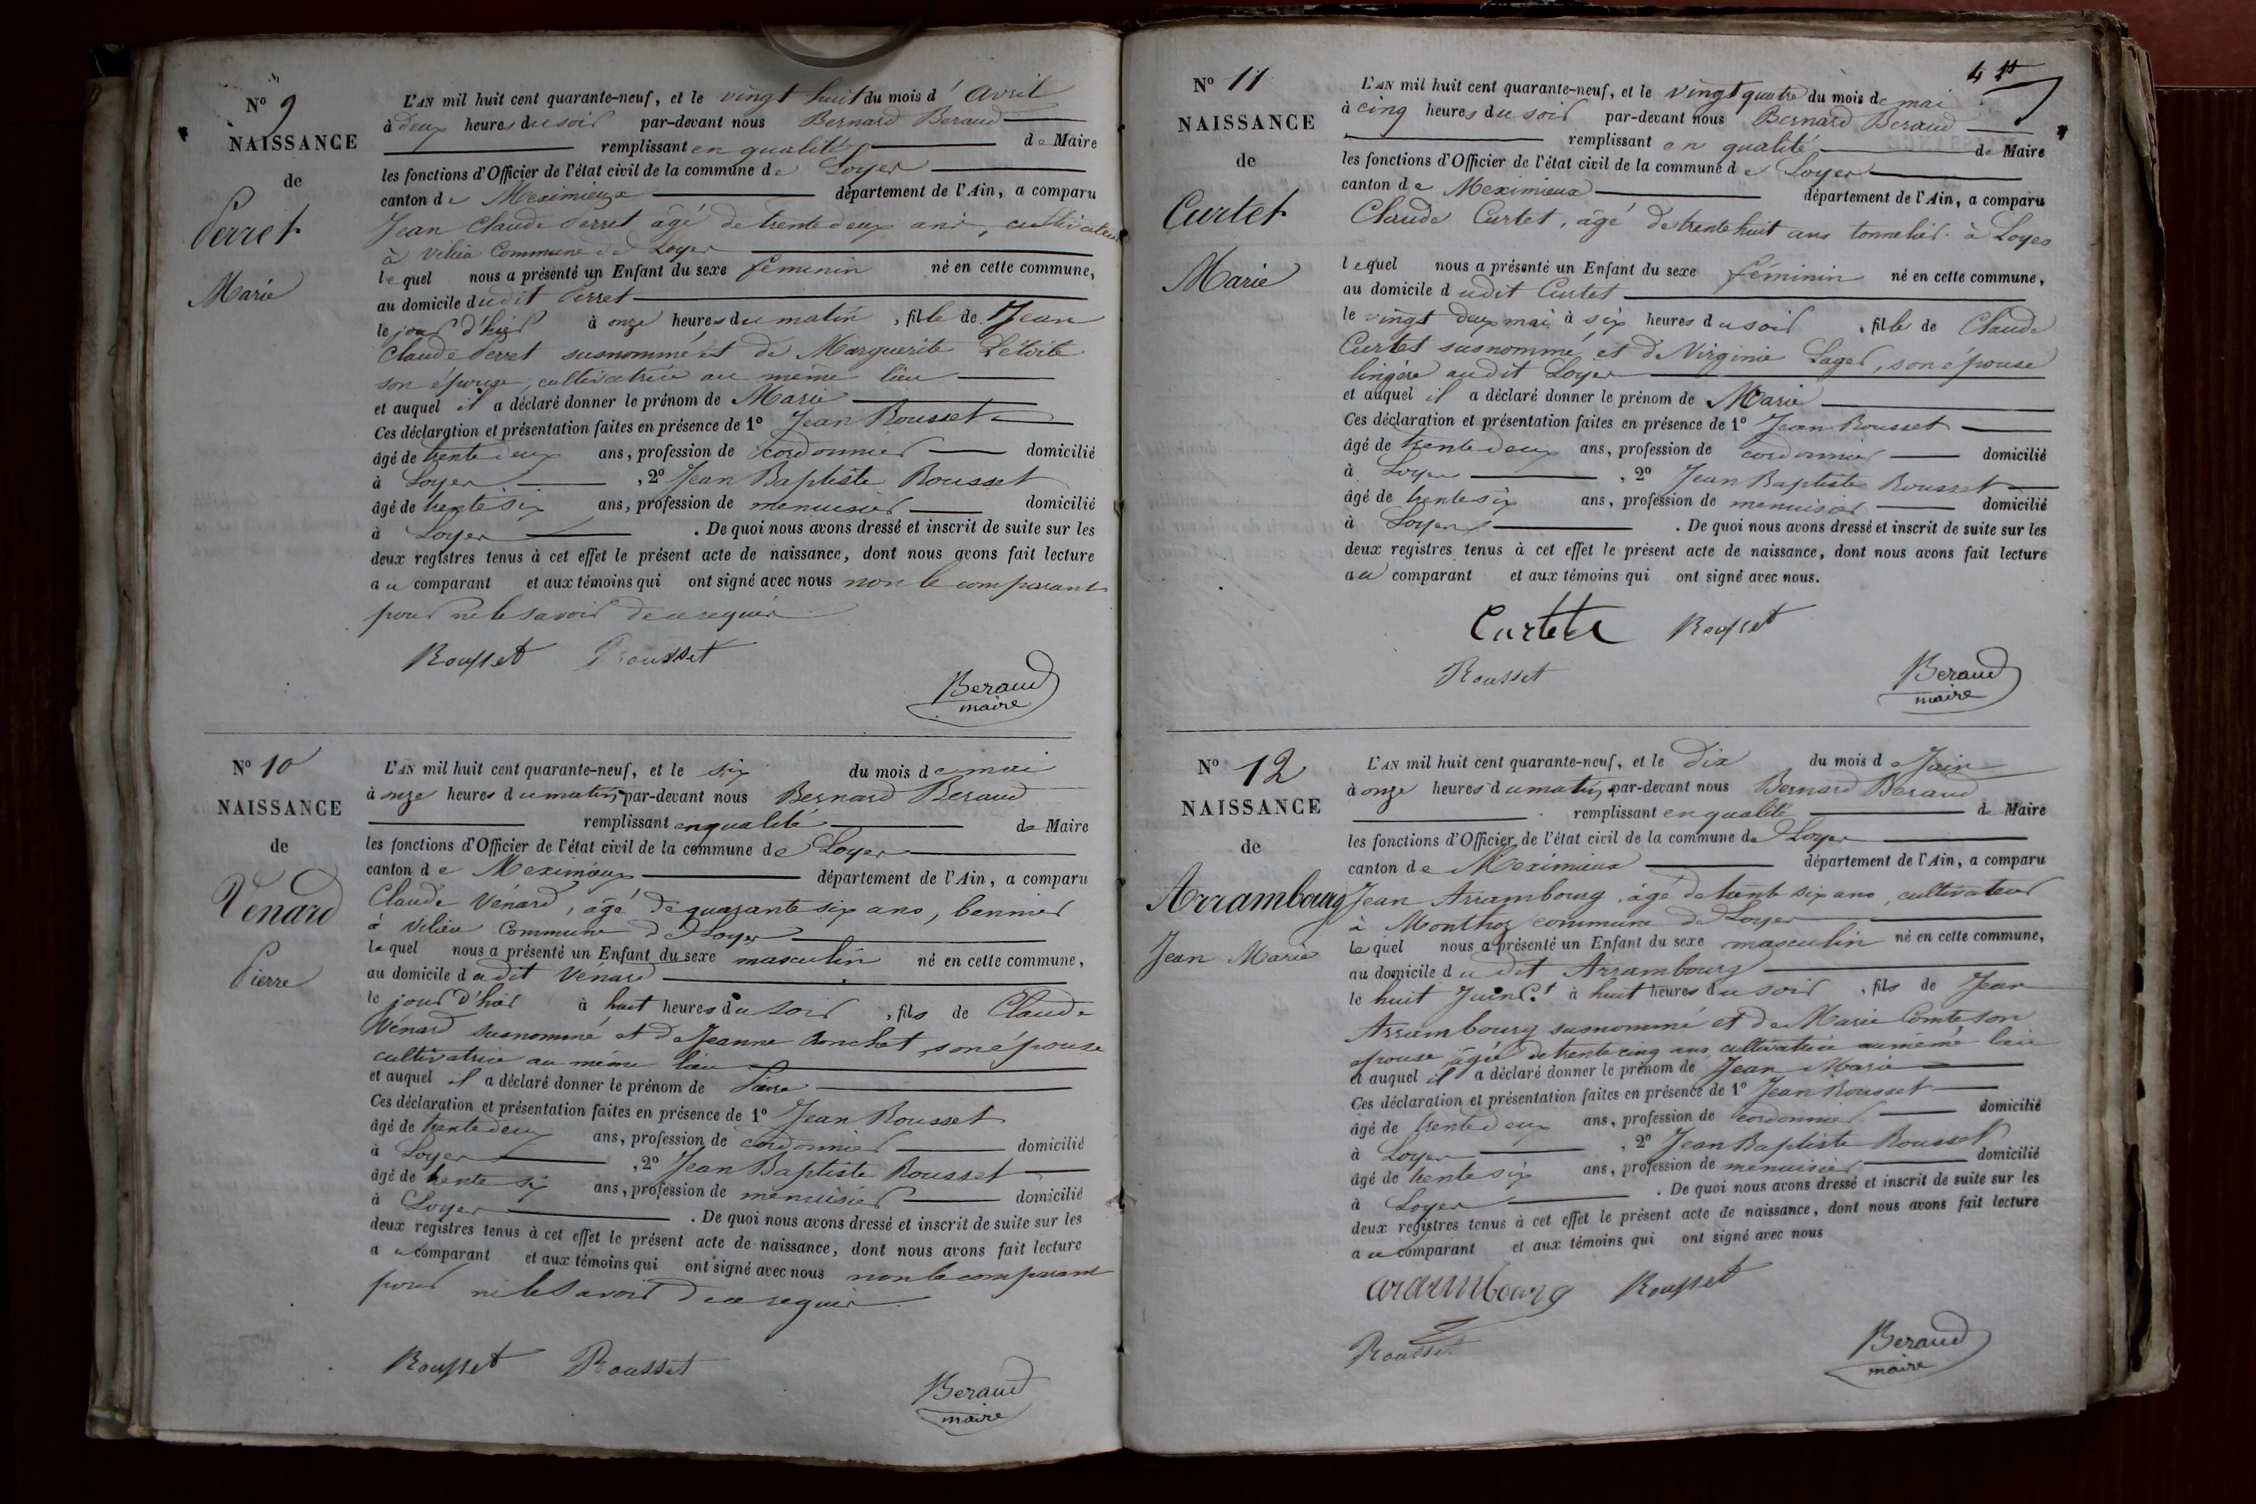 Nº 9
NAISSANCE
de
Perret
Marie
L'AN mil huit cent quarante-neuf, et le vingt huit du mois d'avril
à deux heures du soir par-devant nous Bernard Beraud
remplissant en qualité de Maire
les fonctions d'Officier de l'état civil de la commune de Loyes
canton de Meximieux département de l'Ain, a comparu
Jean Claude Perret âgé de trente deux ans, cultivateur
à Vilieu Commune de Loyes
lequel nous a présenté un Enfant du sexe féminin né en cette commune,
au domicile dudit Perret
le jour d'hier à onze heures du matin, fille de Jean
Claude Perret susnommé et de Marguerite
son épouse, cultivatrice au même lieu
et auquel il a déclaré donner le prénom de Marie
Ces déclaration et présentation faites en présence de 1º Jean Rousset
âgé de trente deux ans, profession de cordonnier domicilié
à Loyes, 2º Jean Baptiste Rousset
âgé de trente six ans, profession de menuisier domicilié
à Loyes. De quoi nous avons dressé et inscrit de suite sur les
deux registres tenus à cet effet le présent acte de naissance, dont nous avons fait lecture
au comparant et aux témoins qui ont signé avec nous non le comparant
pour ne le savoir de ce requis
Rousset Rousset
Beraud
maire
Nº 10
NAISSANCE
de
Vénard
Pierre
L'AN mil huit cent quarante-neuf, et le six du mois de mai
à onze heures du matin, par-devant nous Bernard Beraud
remplissant en qualité de Maire
les fonctions d'Officier de l'état civil de la commune de Loyes
canton de Meximieux département de l'Ain, a comparu
Claude Vénard, âgé de quarante six ans, bennier
à Vilieu Commune de Loyes
lequel nous a présenté un Enfant du sexe masculin né en cette commune,
au domicile dudit Vénard
le jour d'hier à huit heures du soir, fils de Claude
Vénard susnommé et de Jeanne Ronchet, son épouse
cultivatrice au même lieu
et auquel il a déclaré donner le prénom de Pierre
Ces déclaration et présentation faites en présence de 1º Jean Rousset
âgé de trente deux ans, profession de cordonnier domicilié
à Loyes, 2º Jean Baptiste Rousset
âgé de trente six ans, profession de menuisier domicilié
à Loyes. De quoi nous avons dressé et inscrit de suite sur les
deux registres tenus à cet effet le présent acte de naissance, dont nous avons fait lecture
au comparant et aux témoins qui ont signé avec nous non le comparant
pour ne le savoir de ce requis
Rousset Rousset
Beraud
maire
Nº 11
NAISSANCE
de
Curtet
Marie
L'AN mil huit cent quarante-neuf, et le vingt quatre du mois de mai
à cinq heures du soir par-devant nous Bernard Beraud
remplissant en qualité de Maire
les fonctions d'Officier de l'état civil de la commune de Loyes
canton de Meximieux département de l'Ain, a comparu
Claude Curtet, âgé de trente huit ans tonnelier à Loyes
lequel nous a présenté un Enfant du sexe féminin né en cette commune,
au domicile dudit Curtet
le vingt deux mai à six heures du soir, fille de Claude
Curtet susnommé et de Virginie Lager, son épouse
lingère audit Loyes
et auquel il a déclaré donner le prénom de Marie
Ces déclaration et présentation faites en présence de 1º Jean Rousset
âgé de trente deux ans, profession de cordonnier domicilié
à Loyes, 2º Jean Baptiste Rousset
âgé de trente six ans, profession de menuisier domicilié
à Loyes. De quoi nous avons dressé et inscrit de suite sur les
deux registres tenus à cet effet le présent acte de naissance, dont nous avons fait lecture
au comparant et aux témoins qui ont signé avec nous.
Curtet Rousset
Rousset
Beraud
maire
Nº 12
NAISSANCE
de
Arrambourg
Jean Marie
L'AN mil huit cent quarante-neuf, et le dix du mois de Juin
à onze heures du matin, par-devant nous Bernard Beraud
remplissant en qualité de Maire
les fonctions d'Officier de l'état civil de la commune de Loyes
canton de Meximieux département de l'Ain, a comparu
Jean Arrambourg âgé de trente six ans, cultivateur
à Monthoz commune de Loyes
lequel nous a présenté un Enfant du sexe masculin né en cette commune,
au domicile dudit Arrambourg
le huit Juin Ct à huit heures du soir, fils de Jean
Arrambourg susnommé et de Marie Comte son
épouse âgée de trente cinq ans cultivatrice au même lieu
et auquel il a déclaré donner le prénom de Jean Marie
Ces déclaration et présentation faites en présence de 1º Jean Rousset
âgé de trente deux ans, profession de cordonnier domicilié
à Loyes, 2º Jean Baptiste Rousset
âgé de trente six ans, profession de menuisier domicilié
à Loyes. De quoi nous avons dressé et inscrit de suite sur les
deux registres tenus à cet effet le présent acte de naissance, dont nous avons fait lecture
au comparant et aux témoins qui ont signé avec nous
ararmbourg Rousset
Rousset
Beraud
maire